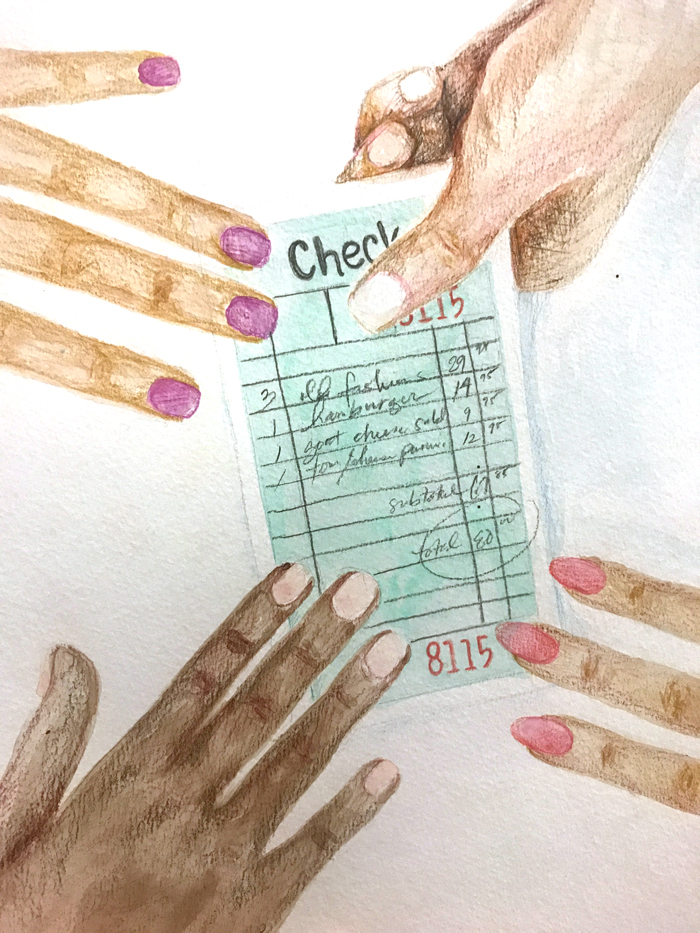 Check
8115
3 old fashions 29
1 hamburger 14 95
1 goat cheese salad 9 95
1 12 95
subtotal
total 80 00
8115